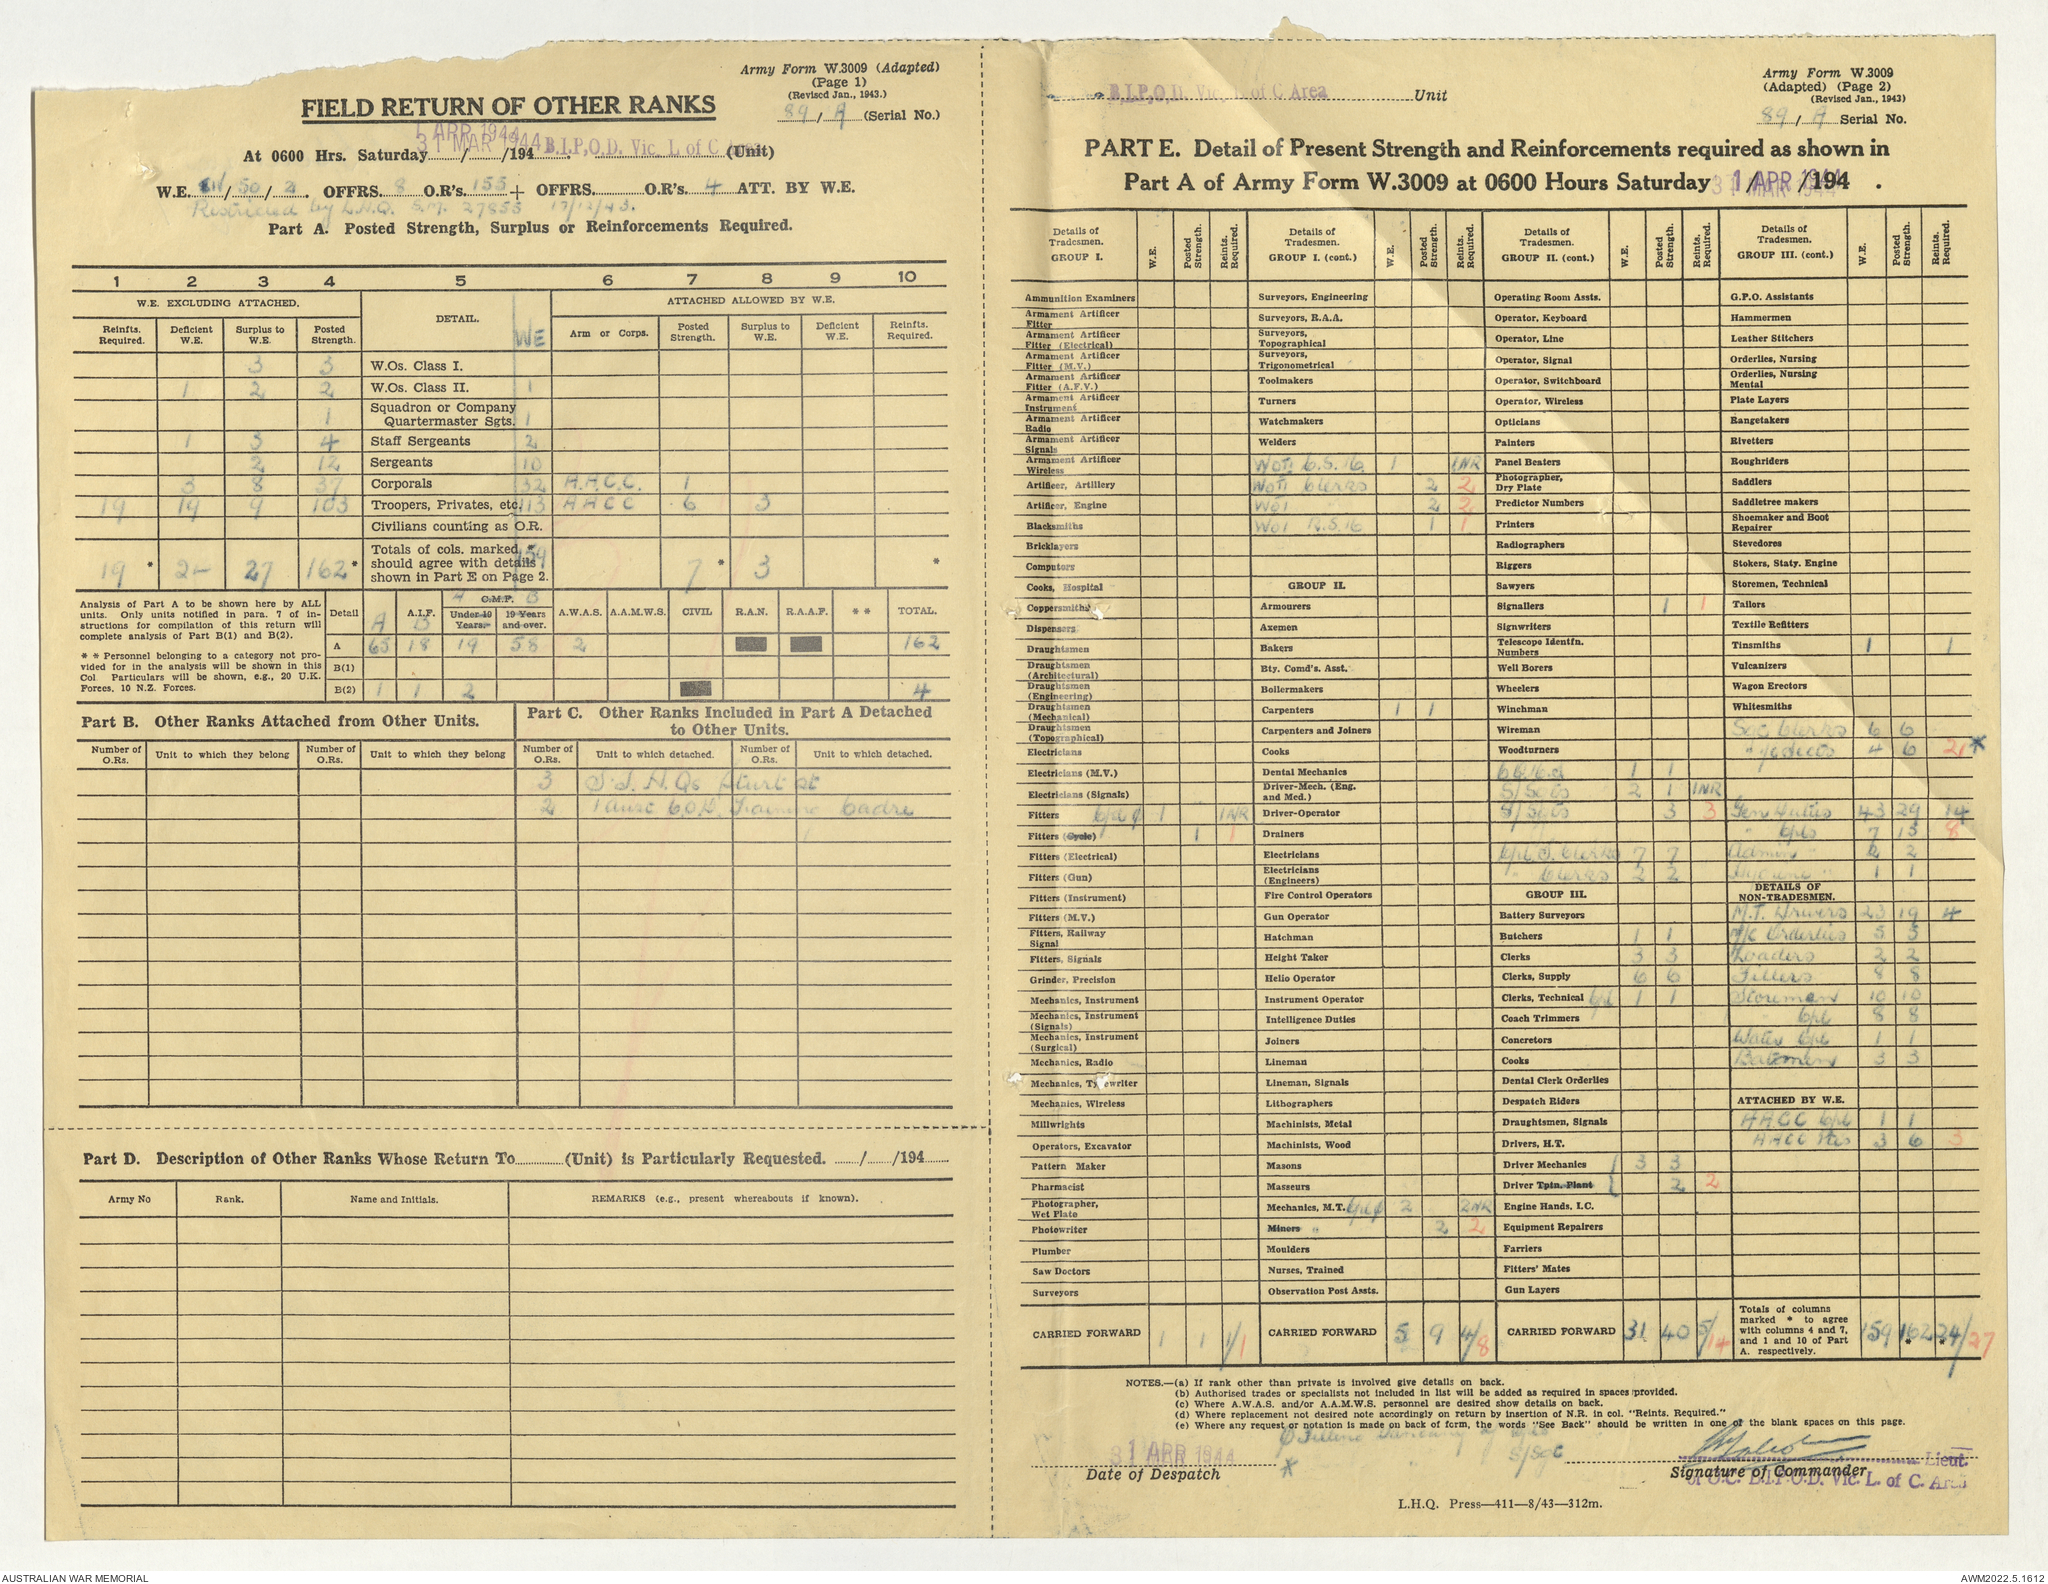 Army Form W.3009 (Adapted)
(Page 1)
(Revised Jan., 1943.)
FIELD RETURN OF OTHER RANKS
89 / A (Serial No.)
1 APR 1944
31 MAR 1944
At 0600 Hrs. Saturday ...... / ...... /194 ...... B.I.P.O.D. Vic. L of C Area (Unit)
W.E. / 50 / 2 . OFFRS. 8 O.R's. 155 + OFFRS. O.R's. 4 ATT. BY W.E.
Restricted by L.H.Q. S.M. 27855 17/12/43.
Part A. Posted Strength, Surplus or Reinforcements Required.
1 2 3 4 5 6 7 8 9 10
W.E. EXCLUDING ATTACHED. DETAIL. WE ATTACHED ALLOWED BY W.E.
Reinfts. Required. Deficient W.E. Surplus to W.E. Posted Strength. Arm or Corps. Posted Strength. Surplus to W.E. Deficient W.E. Reinfts. Required.
3 3 W.Os. Class I.
1 2 2 W.Os. Class II. 1
1 Squadron or Company Quartermaster Sgts. 1
1 3 4 Staff Sergeants 2
2 12 Sergeants 10
3 8 37 Corporals 32 A.A.C.C. 1
19 19 9 103 Troopers, Privates, etc. 113 AACC 6 3
Civilians counting as O.R.
19 * 2- 27 162 * Totals of cols. marked * should agree with details shown in Part E on Page 2. 159 7 * 3 *
Analysis of Part A to be shown here by ALL units. Only units notified in para. 7 of instructions for compilation of this return will complete analysis of Part B(1) and B(2).
* * Personnel belonging to a category not provided for in the analysis will be shown in this Col. Particulars will be shown, e.g., 20 U.K. Forces, 10 N.Z. Forces.
Detail A A.I.F. B C.M.F. A B Under 19 Years. 19 Years and over. A.W.A.S. A.A.M.W.S. CIVIL R.A.N. R.A.A.F. * * TOTAL.
A 65 18 19 58 2 162
B(1)
B(2) 1 1 2 4
Part B. Other Ranks Attached from Other Units.
Part C. Other Ranks Included in Part A Detached to Other Units.
Number of O.Rs. Unit to which they belong Number of O.Rs. Unit to which they belong Number of O.Rs. Unit to which detached. Number of O.Rs. Unit to which detached.
3 H.Qs Sturt St
2 1 Aust C.O.D. Training Cadre
Part D. Description of Other Ranks Whose Return To ............ (Unit) is Particularly Requested. ...... / ...... /194 ......
Army No Rank. Name and Initials. REMARKS (e.g., present whereabouts if known).
B.I.P.O.D. Vic. L of C Area Unit
Army Form W.3009
(Adapted) (Page 2)
(Revised Jan., 1943)
89 / A Serial No.
PART E. Detail of Present Strength and Reinforcements required as shown in
Part A of Army Form W.3009 at 0600 Hours Saturday 1 APR /194 .
31 MAR 1944
Details of Tradesmen. GROUP I. W.E. Posted Strength. Reints. Required.
Ammunition Examiners
Armament Artificer Fitter
Armament Artificer Fitter (Electrical)
Armament Artificer Fitter (M.V.)
Armament Artificer Fitter (A.F.V.)
Armament Artificer Instrument
Armament Artificer Radio
Armament Artificer Signals
Armament Artificer Wireless
Artificer, Artillery
Artificer, Engine
Blacksmiths
Bricklayers
Computors
Cooks, Hospital
Coppersmiths
Dispensers
Draughtsmen
Draughtsmen (Architectural)
Draughtsmen (Engineering)
Draughtsmen (Mechanical)
Draughtsmen (Topographical)
Electricians
Electricians (M.V.)
Electricians (Signals)
Fitters Cpl ϕ 1 1NR
Fitters (Cycle) 1 1
Fitters (Electrical)
Fitters (Gun)
Fitters (Instrument)
Fitters (M.V.)
Fitters, Railway Signal
Fitters, Signals
Grinder, Precision
Mechanics, Instrument
Mechanics, Instrument (Signals)
Mechanics, Instrument (Surgical)
Mechanics, Radio
Mechanics, Typewriter
Mechanics, Wireless
Millwrights
Operators, Excavator
Pattern Maker
Pharmacist
Photographer, Wet Plate
Photowriter
Plumber
Saw Doctors
Surveyors
CARRIED FORWARD 1 1 1/1
Details of Tradesmen. GROUP I. (cont.) W.E. Posted Strength. Reints. Required.
Surveyors, Engineering
Surveyors, R.A.A.
Surveyors, Topographical
Surveyors, Trigonometrical
Toolmakers
Turners
Watchmakers
Welders
1 1NR
WOII Clerks 2 2
WOI 2 2
WOI 1 1
GROUP II.
Armourers
Axemen
Bakers
Bty. Comd's. Asst.
Boilermakers
Carpenters 1 1
Carpenters and Joiners
Cooks
Dental Mechanics
Driver-Mech. (Eng. and Med.)
Driver-Operator
Drainers
Electricians
Electricians (Engineers)
Fire Control Operators
Gun Operator
Hatchman
Height Taker
Helio Operator
Instrument Operator
Intelligence Duties
Joiners
Lineman
Lineman, Signals
Lithographers
Machinists, Metal
Machinists, Wood
Masons
Masseurs
Mechanics, M.T. Cpl ϕ 2 2NR
Minors " 2 2
Moulders
Nurses, Trained
Observation Post Assts.
CARRIED FORWARD 5 9 4/8
Details of Tradesmen. GROUP II. (cont.) W.E. Posted Strength. Reints. Required.
Operating Room Assts.
Operator, Keyboard
Operator, Line
Operator, Signal
Operator, Switchboard
Operator, Wireless
Opticians
Painters
Panel Beaters
Photographer, Dry Plate
Predictor Numbers
Printers
Radiographers
Riggers
Sawyers
Signallers 1 1
Signwriters
Telescope Identfn. Numbers
Well Borers
Wheelers
Winchman
Wireman
Woodturners
1 1
S/Sgts 2 1 1NR
S/Sgts 3 3
Cpl S. Clerks 7 7
" Clerks 2 2
GROUP III.
Battery Surveyors
Butchers 1 1
Clerks 3 3
Clerks, Supply 6 6
Clerks, Technical Cpl 1 1
Coach Trimmers
Concretors
Cooks
Dental Clerk Orderlies
Despatch Riders
Draughtsmen, Signals
Drivers, H.T.
Driver Mechanics 3 3
Driver Tptn. Plant 2 2
Engine Hands, I.C.
Equipment Repairers
Farriers
Fitters' Mates
Gun Layers
CARRIED FORWARD 31 40 5/14
Details of Tradesmen. GROUP III. (cont.) W.E. Posted Strength. Reints. Required.
G.P.O. Assistants
Hammermen
Leather Stitchers
Orderlies, Nursing
Orderlies, Nursing Mental
Plate Layers
Rangetakers
Rivetters
Roughriders
Saddlers
Saddletree makers
Shoemaker and Boot Repairer
Stevedores
Stokers, Staty. Engine
Storemen, Technical
Tailors
Textile Refitters
Tinsmiths 1 1
Vulcanizers
Wagon Erectors
Whitesmiths
Sgt Clerks 6 6
" 4 6 2 *
Gen Duties 43 29 14
" Cpls 7 15 8
Admin " 2 2
Hygiene " 1 1
DETAILS OF NON-TRADESMEN.
M.T. Drivers 23 19 4
M/C Orderlies 5 5
Loaders 2 2
Fillers 8 8
Storeman 10 10
" Cpl 8 8
Water Cpl 1 1
Batmen 3 3
ATTACHED BY W.E.
AACC Cpl 1 1
AACC Ptes 3 6 3
Totals of columns marked * to agree with columns 4 and 7, and 1 and 10 of Part A. respectively. 159 162 * 24/27 *
NOTES.—(a) If rank other than private is involved give details on back.
(b) Authorised trades or specialists not included in list will be added as required in spaces provided.
(c) Where A.W.A.S. and/or A.A.M.W.S. personnel are desired show details on back.
(d) Where replacement not desired note accordingly on return by insertion of N.R. in col. "Reints. Required."
(e) Where any request or notation is made on back of form, the words "See Back" should be written in one of the blank spaces on this page.
ϕ Filling Vacancy of Cpls
* " " S/Sgt
1 APR 1944
31 MAR 1944
Date of Despatch
Lieut.
Signature of Commander
O.C. B.I.P.O.D. Vic. L. of C. Area
L.H.Q. Press—411—8/43—312m.
AUSTRALIAN WAR MEMORIAL
AWM2022.5.1612